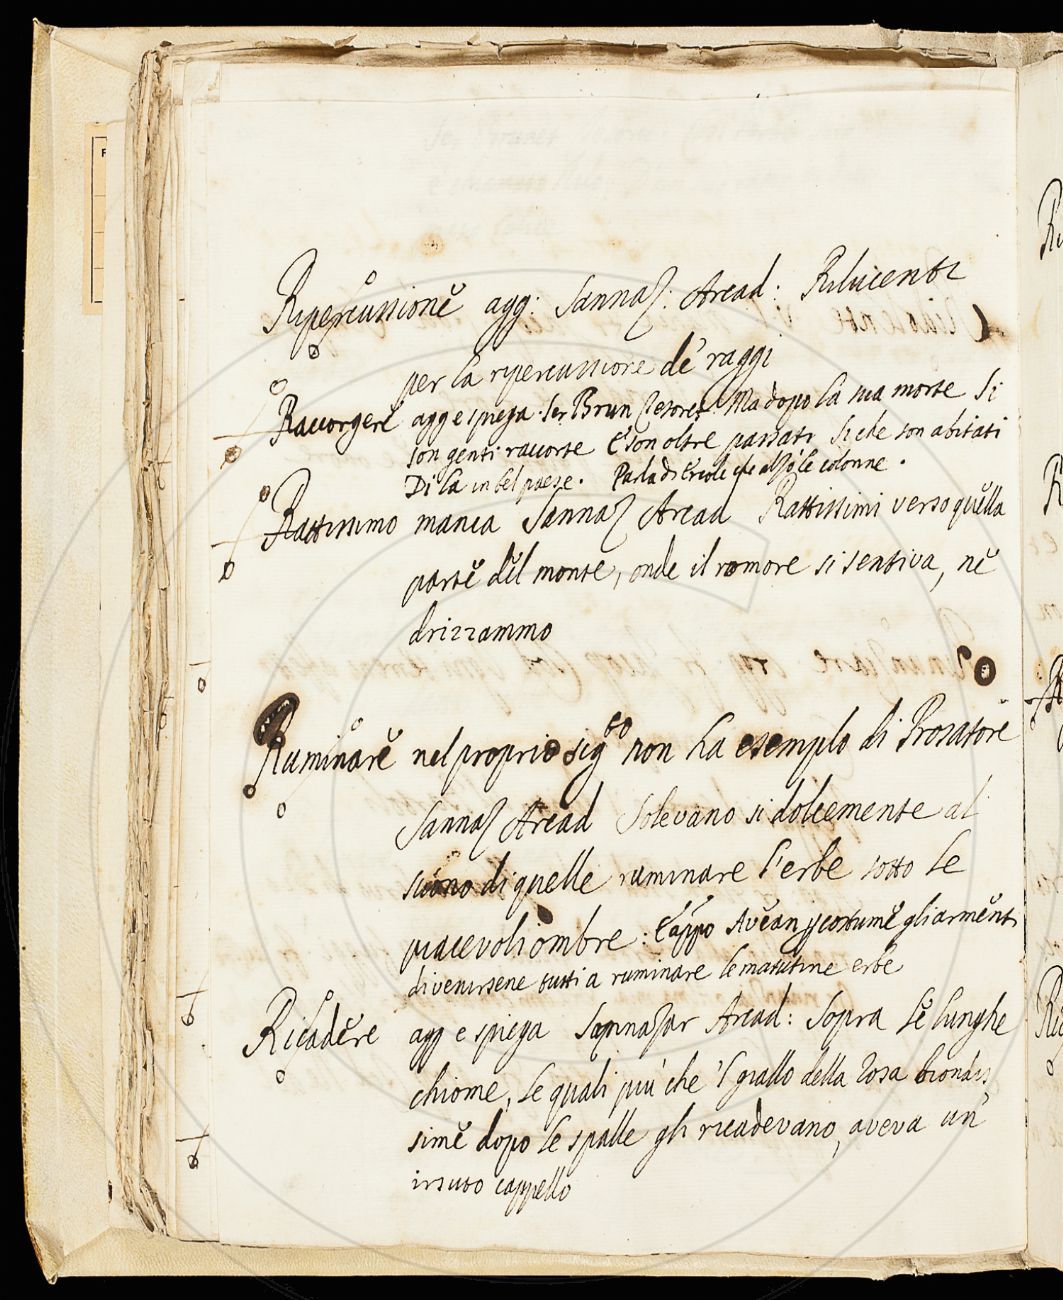 Ripercussione agg: Sannaz: Arcad: Rilucente
per la ripercussione de' raggi
Raccorgere agg e spiega. Ser Brun Tesoret Ma dopo la sua morte Si
son genti raccorte E son oltre passati Si che son abitati
Di là in bel paese. Parla di Ercole che alzò le colonne.
Rattissimo manca Sannaz Arcad Rattissimi verso quella
parte del monte, onde il romore si sentiva, ne
drizzammo
Ruminare nel proprio sig.to non ha esemplo di Prosatore
Sannaz Arcad Solevano si dolcemente al
suono di quelle ruminare l'erbe sotto le
piacevoli ombre: E appo Avean p costume gli armenti
di venirsene tutti a ruminare le matutine erbe
Ricadere agg e spiega Sannazar Arcad: Sopra le lunghe
chiome, le quali più che 'l giallo della rosa biondis
sime dopo le spalle gli ricadevano, aveva un'
irsuto cappello